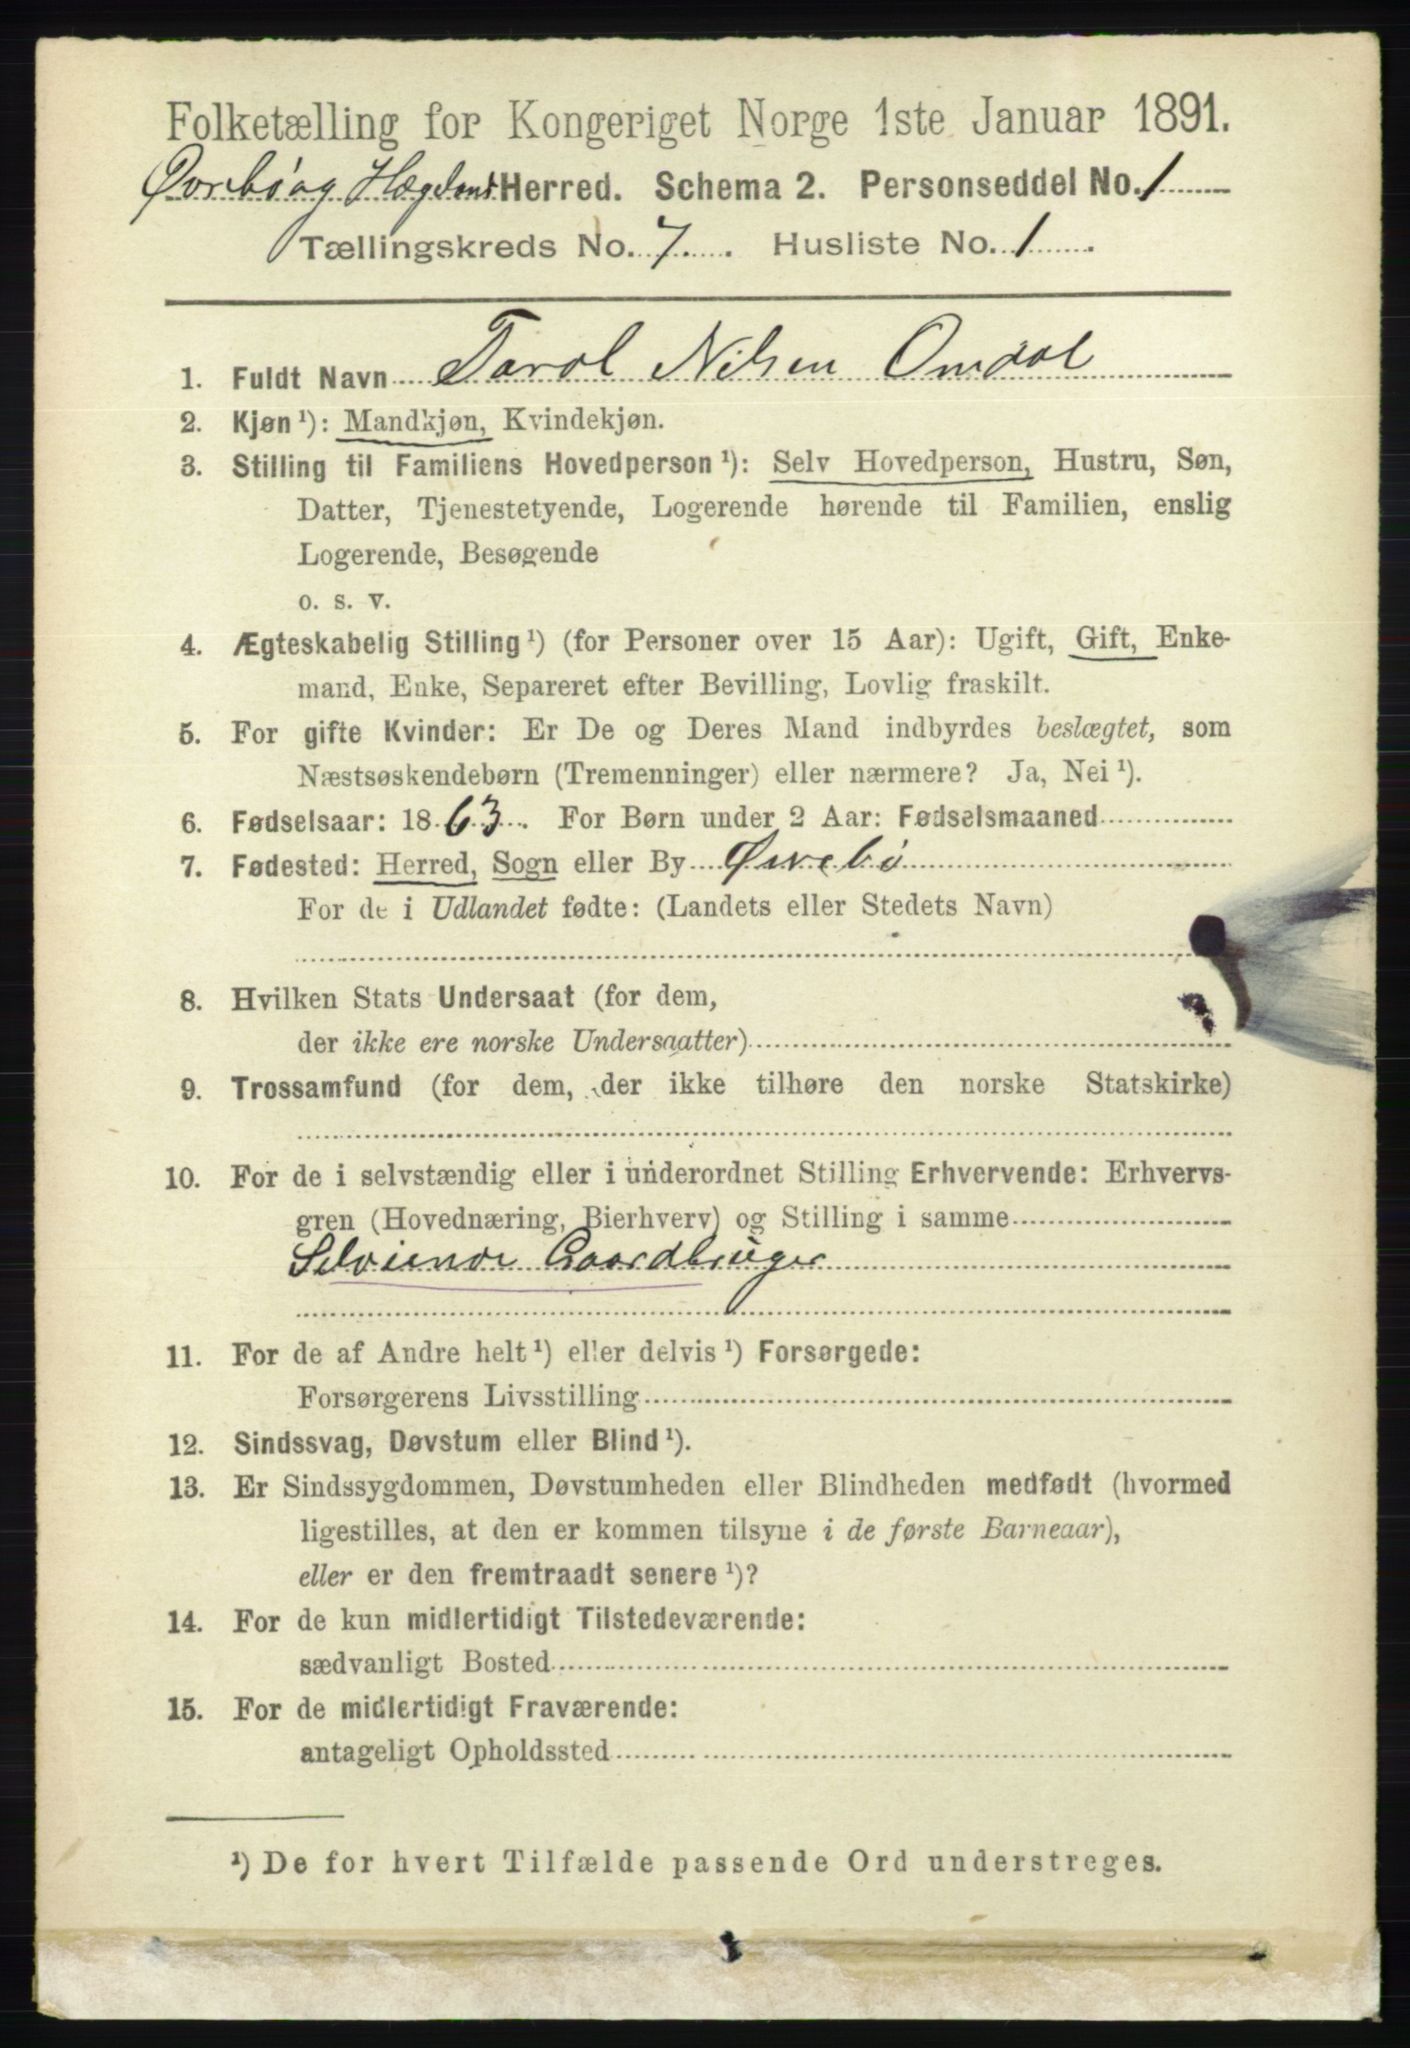 Folketælling for Kongeriget Norge 1ste Januar 1891.
Øvrebø og Hægelands Herred. Schema 2. Personseddel No. 1
Tællingskreds No. 7. Husliste No. 1.
1. Fuldt Navn Tarol Nilsen Omdal
2. Kjøn ¹): Mandkjøn, Kvindekjøn.
3. Stilling til Familiens Hovedperson ¹): Selv Hovedperson, Hustru, Søn,
Datter, Tjenestetyende, Logerende hørende til Familien, enslig
Logerende, Besøgende
o. s. v.
4. Ægteskabelig Stilling ¹) (for Personer over 15 Aar): Ugift, Gift, Enke-
mand, Enke, Separeret efter Bevilling, Lovlig fraskilt.
5. For gifte Kvinder: Er De og Deres Mand indbyrdes beslægtet, som
Næstsøskendebørn (Tremenninger) eller nærmere? Ja, Nei ¹).
6. Fødselsaar: 1863. For Børn under 2 Aar: Fødselsmaaned
7. Fødested: Herred, Sogn eller By Øvrebø
For de i Udlandet fødte: (Landets eller Stedets Navn)
8. Hvilken Stats Undersaat (for dem,
der ikke ere norske Undersaatter)
9. Trossamfund (for dem, der ikke tilhøre den norske Statskirke)
10. For de i selvstændig eller i underordnet Stilling Erhvervende: Erhvervs-
gren (Hovednæring, Bierhverv) og Stilling i samme
Selveiende Gaardbruger
11. For de af Andre helt ¹) eller delvis ¹) Forsørgede:
Forsørgerens Livsstilling
12. Sindssvag, Døvstum eller Blind ¹).
13. Er Sindssygdommen, Døvstumheden eller Blindheden medfødt (hvormed
ligestilles, at den er kommen tilsyne i de første Barneaar),
eller er den fremtraadt senere ¹)?
14. For de kun midlertidigt Tilstedeværende:
sædvanligt Bosted
15. For de midlertidigt Fraværende:
antageligt Opholdssted
¹) De for hvert Tilfælde passende Ord understreges.